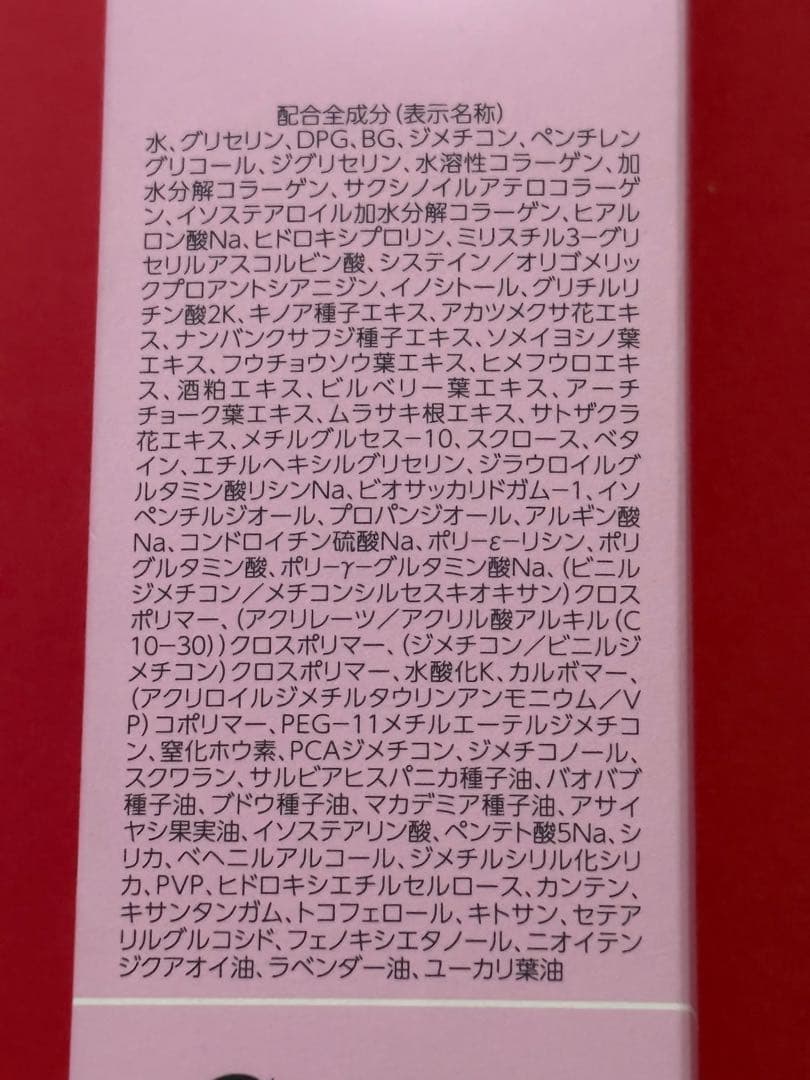 配合全成分(表示名称)
水、グリセリン、DPG、BG、ジメチコン、ペンチレン
グリコール、ジグリセリン、水溶性コラーゲン、加
水分解コラーゲン、サクシノイルアテロコラーゲ
ン、イソステアロイル加水分解コラーゲン、ヒアル
ロン酸Na、ヒドロキシプロリン、ミリスチル3-グリ
セリルアスコルビン酸、システイン/オリゴメリッ
クプロアントシアニジン、イノシトール、グリチルリ
チン酸2K、キノア種子エキス、アカツメクサ花エキ
ス、ナンバンクサフジ種子エキス、ソメイヨシノ葉
エキス、フウチョウソウ葉エキス、ヒメフウロエキ
ス、酒粕エキス、ビルベリー葉エキス、アーチ
チョーク葉エキス、ムラサキ根エキス、サトザクラ
花エキス、メチルグルセス-10、スクロース、ベタ
イン、エチルヘキシルグリセリン、ジラウロイルグ
ルタミン酸リシンNa、ビオサッカリドガム-1、イソ
ペンチルジオール、プロパンジオール、アルギン酸
Na、コンドロイチン硫酸Na、ポリ-ε-リシン、ポリ
グルタミン酸、ポリ-γ-グルタミン酸Na、(ビニル
ジメチコン/メチコンシルセスキオキサン)クロス
ポリマー、(アクリレーツ/アクリル酸アルキル(C
10-30))クロスポリマー、(ジメチコン/ビニルジ
メチコン)クロスポリマー、水酸化K、カルボマー、
(アクリロイルジメチルタウリンアンモニウム/V
P)コポリマー、PEG-11メチルエーテルジメチコ
ン、窒化ホウ素、PCAジメチコン、ジメチコノール、
スクワラン、サルビアヒスパニカ種子油、バオバブ
種子油、ブドウ種子油、マカデミア種子油、アサイ
ヤシ果実油、イソステアリン酸、ペンテト酸5Na、シ
リカ、ベヘニルアルコール、ジメチルシリル化シリ
カ、PVP、ヒドロキシエチルセルロース、カンテン、
キサンタンガム、トコフェロール、キトサン、セテア
リルグルコシド、フェノキシエタノール、ニオイテン
ジクアオイ油、ラベンダー油、ユーカリ葉油